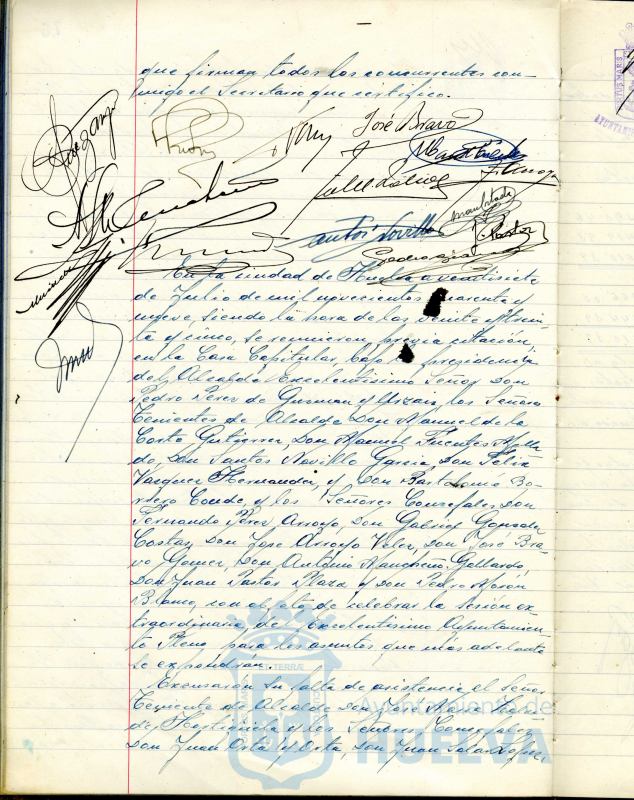 que firman todos los concurrentes con-
migo el Secretario que certifico.
José Bravo
En la ciudad de Huelva a veintisiete
de Julio de mil novecientos cuarenta y
nueve, siendo la hora de las veinte y trein-
ta y cinco, se reunieron, previa citación,
en la Casa Capitular, bajo la presidencia
del Alcalde Excelentísimo Señor Don
Pedro Pérez de Guzmán y Urzaiz, los Señores
Tenientes de Alcalde Don Manuel de la
Corte Gutiérrez, Don Manuel Fuentes Malla-
do, Don Santos Novillo García, Don Félix
Vázquez Hernández, y Don Bartolomé Bo-
rrero Conde, y los Señores Concejales Don
Fernando Pérez Arroyo, Don Gabriel González
Costas, Don José Arroyo Vélez, Don José Bra-
vo Gómez, Don Antonio Mancheño Gallardo,
Don Juan Pastor Plaza y Don Pedro Morón
Blanco, con objeto de celebrar la sesión ex-
traordinaria del Excelentísimo Ayuntamien-
to Pleno para los asuntos que más adelante
se expondrán.
Excusaron su falta de asistencia el Señor
Teniente de Alcalde Don José María
de y los Señores Concejales
Don Juan Orta y Orta, Don Juan Salas López
Ayuntamiento de
HUELVA